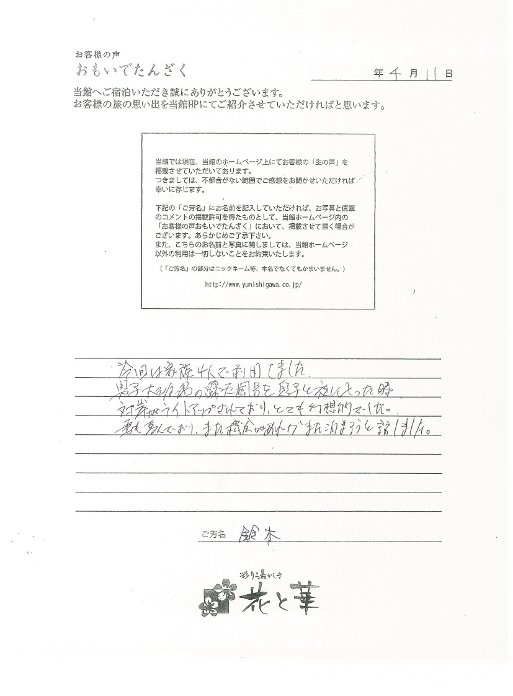 お客様の声
おもいでたんざく
年 4 月 11 日
当館へご宿泊いただき誠にありがとうございます。
お客様の旅の思い出を当館HPにてご紹介させていただければと思います。
当館では現在、当館のホームページ上にてお客様の「生の声」を
掲載させていただいております。
つきましては、不都合がない範囲でご感想をお聞かせいただければ
幸いに存じます。
下記の「ご芳名」にお名前を記入していただければ、お写真と直筆
のコメントの掲載許可を得たものとして、当館ホームページ内の
「お客様の声おもいでたんざく」において、掲載させて頂く場合が
ございます。あらかじめご了承下さい。
また、こちらのお名前と写真に関しましては、当館ホームページ
以外の利用は一切しないことをお約束いたします。
(「ご芳名」の部分はニックネーム等、本名でなくてもかまいません。)
http://www.yunishigawa.co.jp/
今回は家族4人で利用しました。
男子大浴場の露天風呂を息子と夜に入った時
対岸がライトアップされており、とても幻想的でした。
妻も喜んでおり、また機会があれば また泊まろうと話しました。
ご芳名 鈴木
彩り湯かしき
花と華